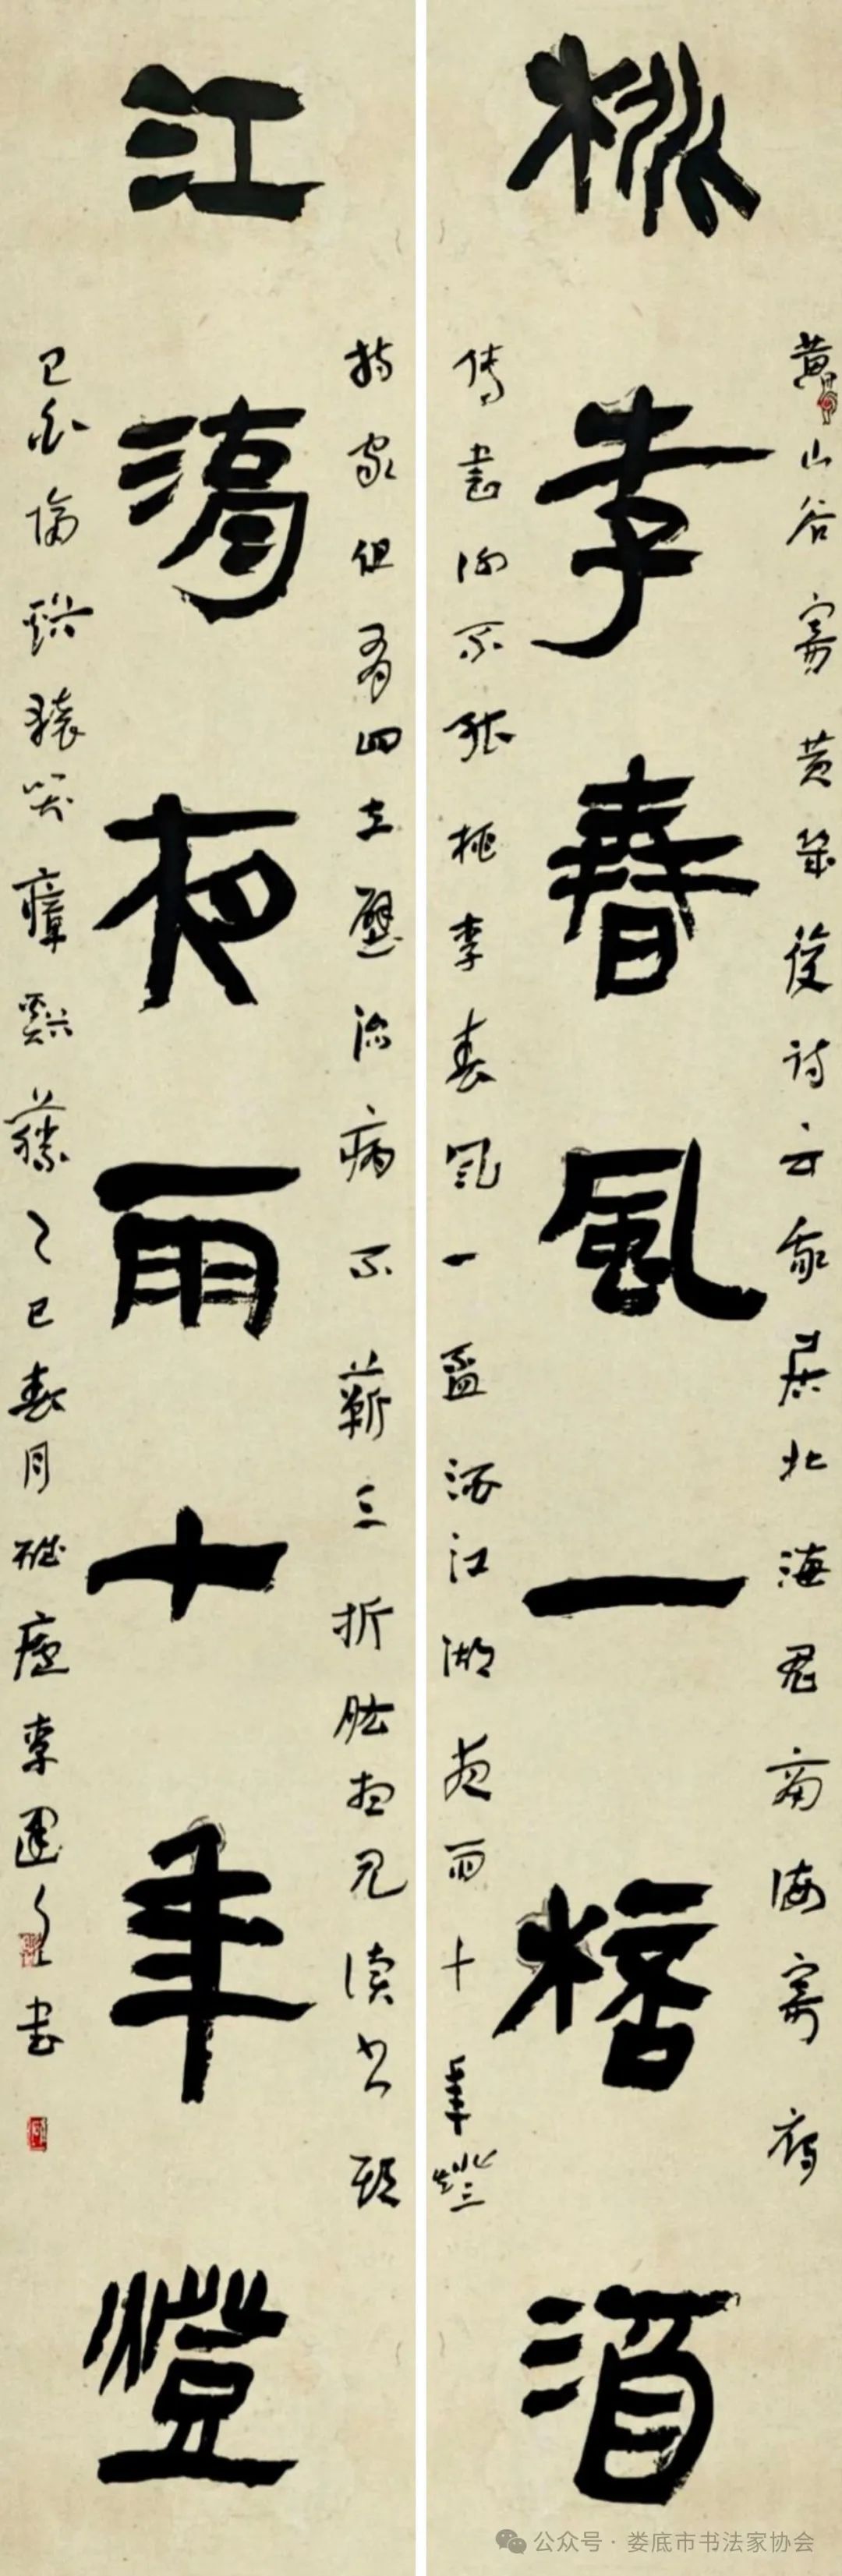 桃李春風一桮酒
江湖夜雨十年燈
黄山谷寄黄幾復詩云我居北海君南海寄雁
傳書謝不能桃李春風一盃酒江湖夜雨十年燈
持家但有四立壁治病不蘄三折肱想見讀書頭
已白隔谿猿哭瘴谿藤乙巳春月廬李建書
公众号·娄底市书法家协会